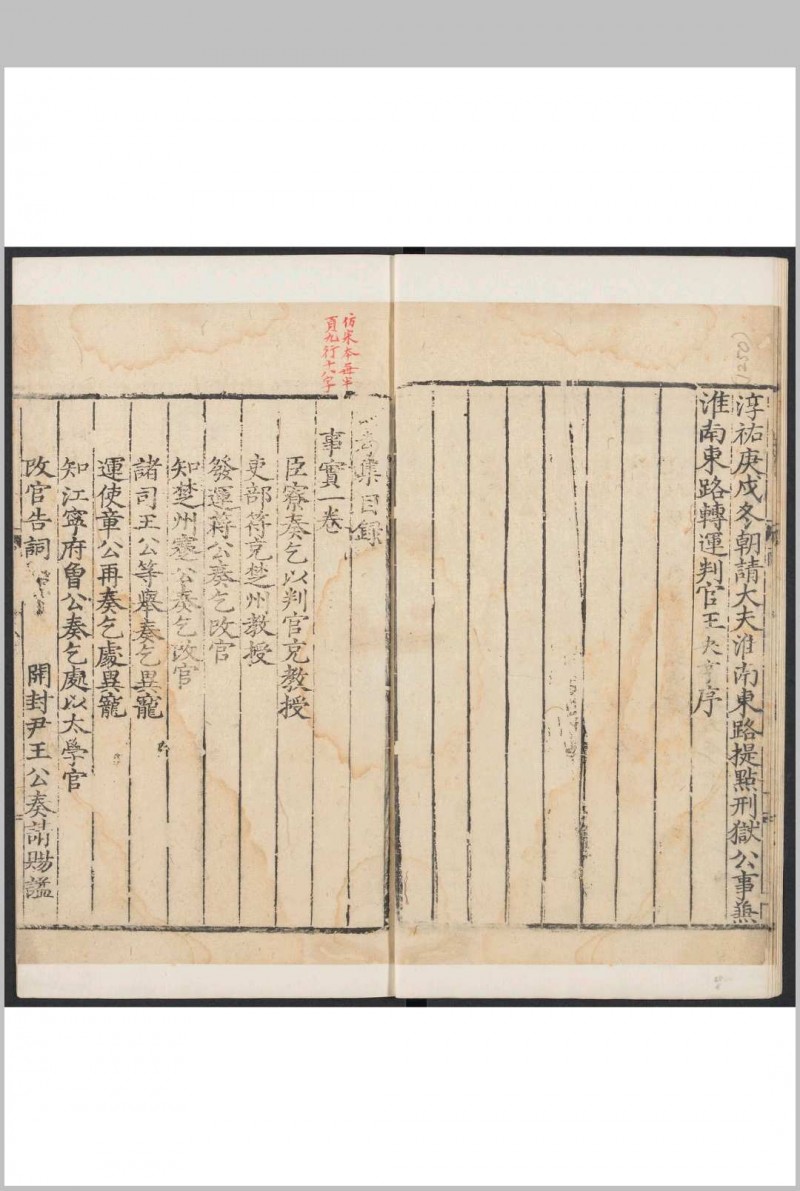 淳祐庚戌冬朝請大夫淮南東路提點刑獄公事兼
淮南東路轉運判官王大亨序
(1250)
仿宋本每半
頁九行十八字
集目錄
事實一卷
臣寮奏乞以判官充教授
吏部符充楚州教授
發運蔣公奏乞改官
知楚州蹇公奏乞改官
諸司王公等舉奏乞異寵
運使章公再奏乞處異寵
知江寧府曾公奏乞處以太學官
改官告詞
開封尹王公奏請賜謚